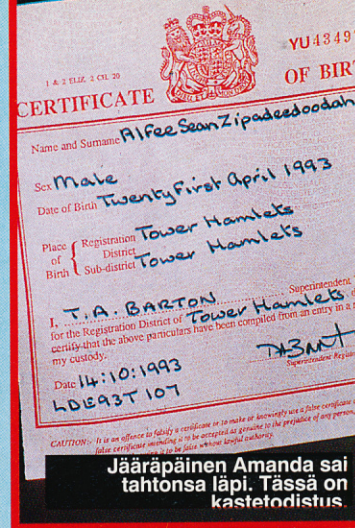 1 & 2 ELIZ. 2 CH. 20
YU43497
CERTIFICATE OF BIR
Name and Surname Alfee Sean Zipadeedoodah
Sex Male
Date of Birth Twenty First April 1993
Place of Birth { Registration District Tower Hamlets
Sub-district Tower Hamlets
I, T. A. BARTON Superintendent
for the Registration District of Tower Hamlets d
certify that the above particulars have been compiled from an entry in a
my custody.
Date 14:10:1993
Superintendent Regist
LDE93T 107
CAUTION:- It is an offence to falsify a certificate or to make or knowingly use a false certificate
false certificate intending it to be accepted as genuine to the prejudice of any person
it to be false without lawful authority.
Jääräpäinen Amanda sai
tahtonsa läpi. Tässä on
kastetodistus.